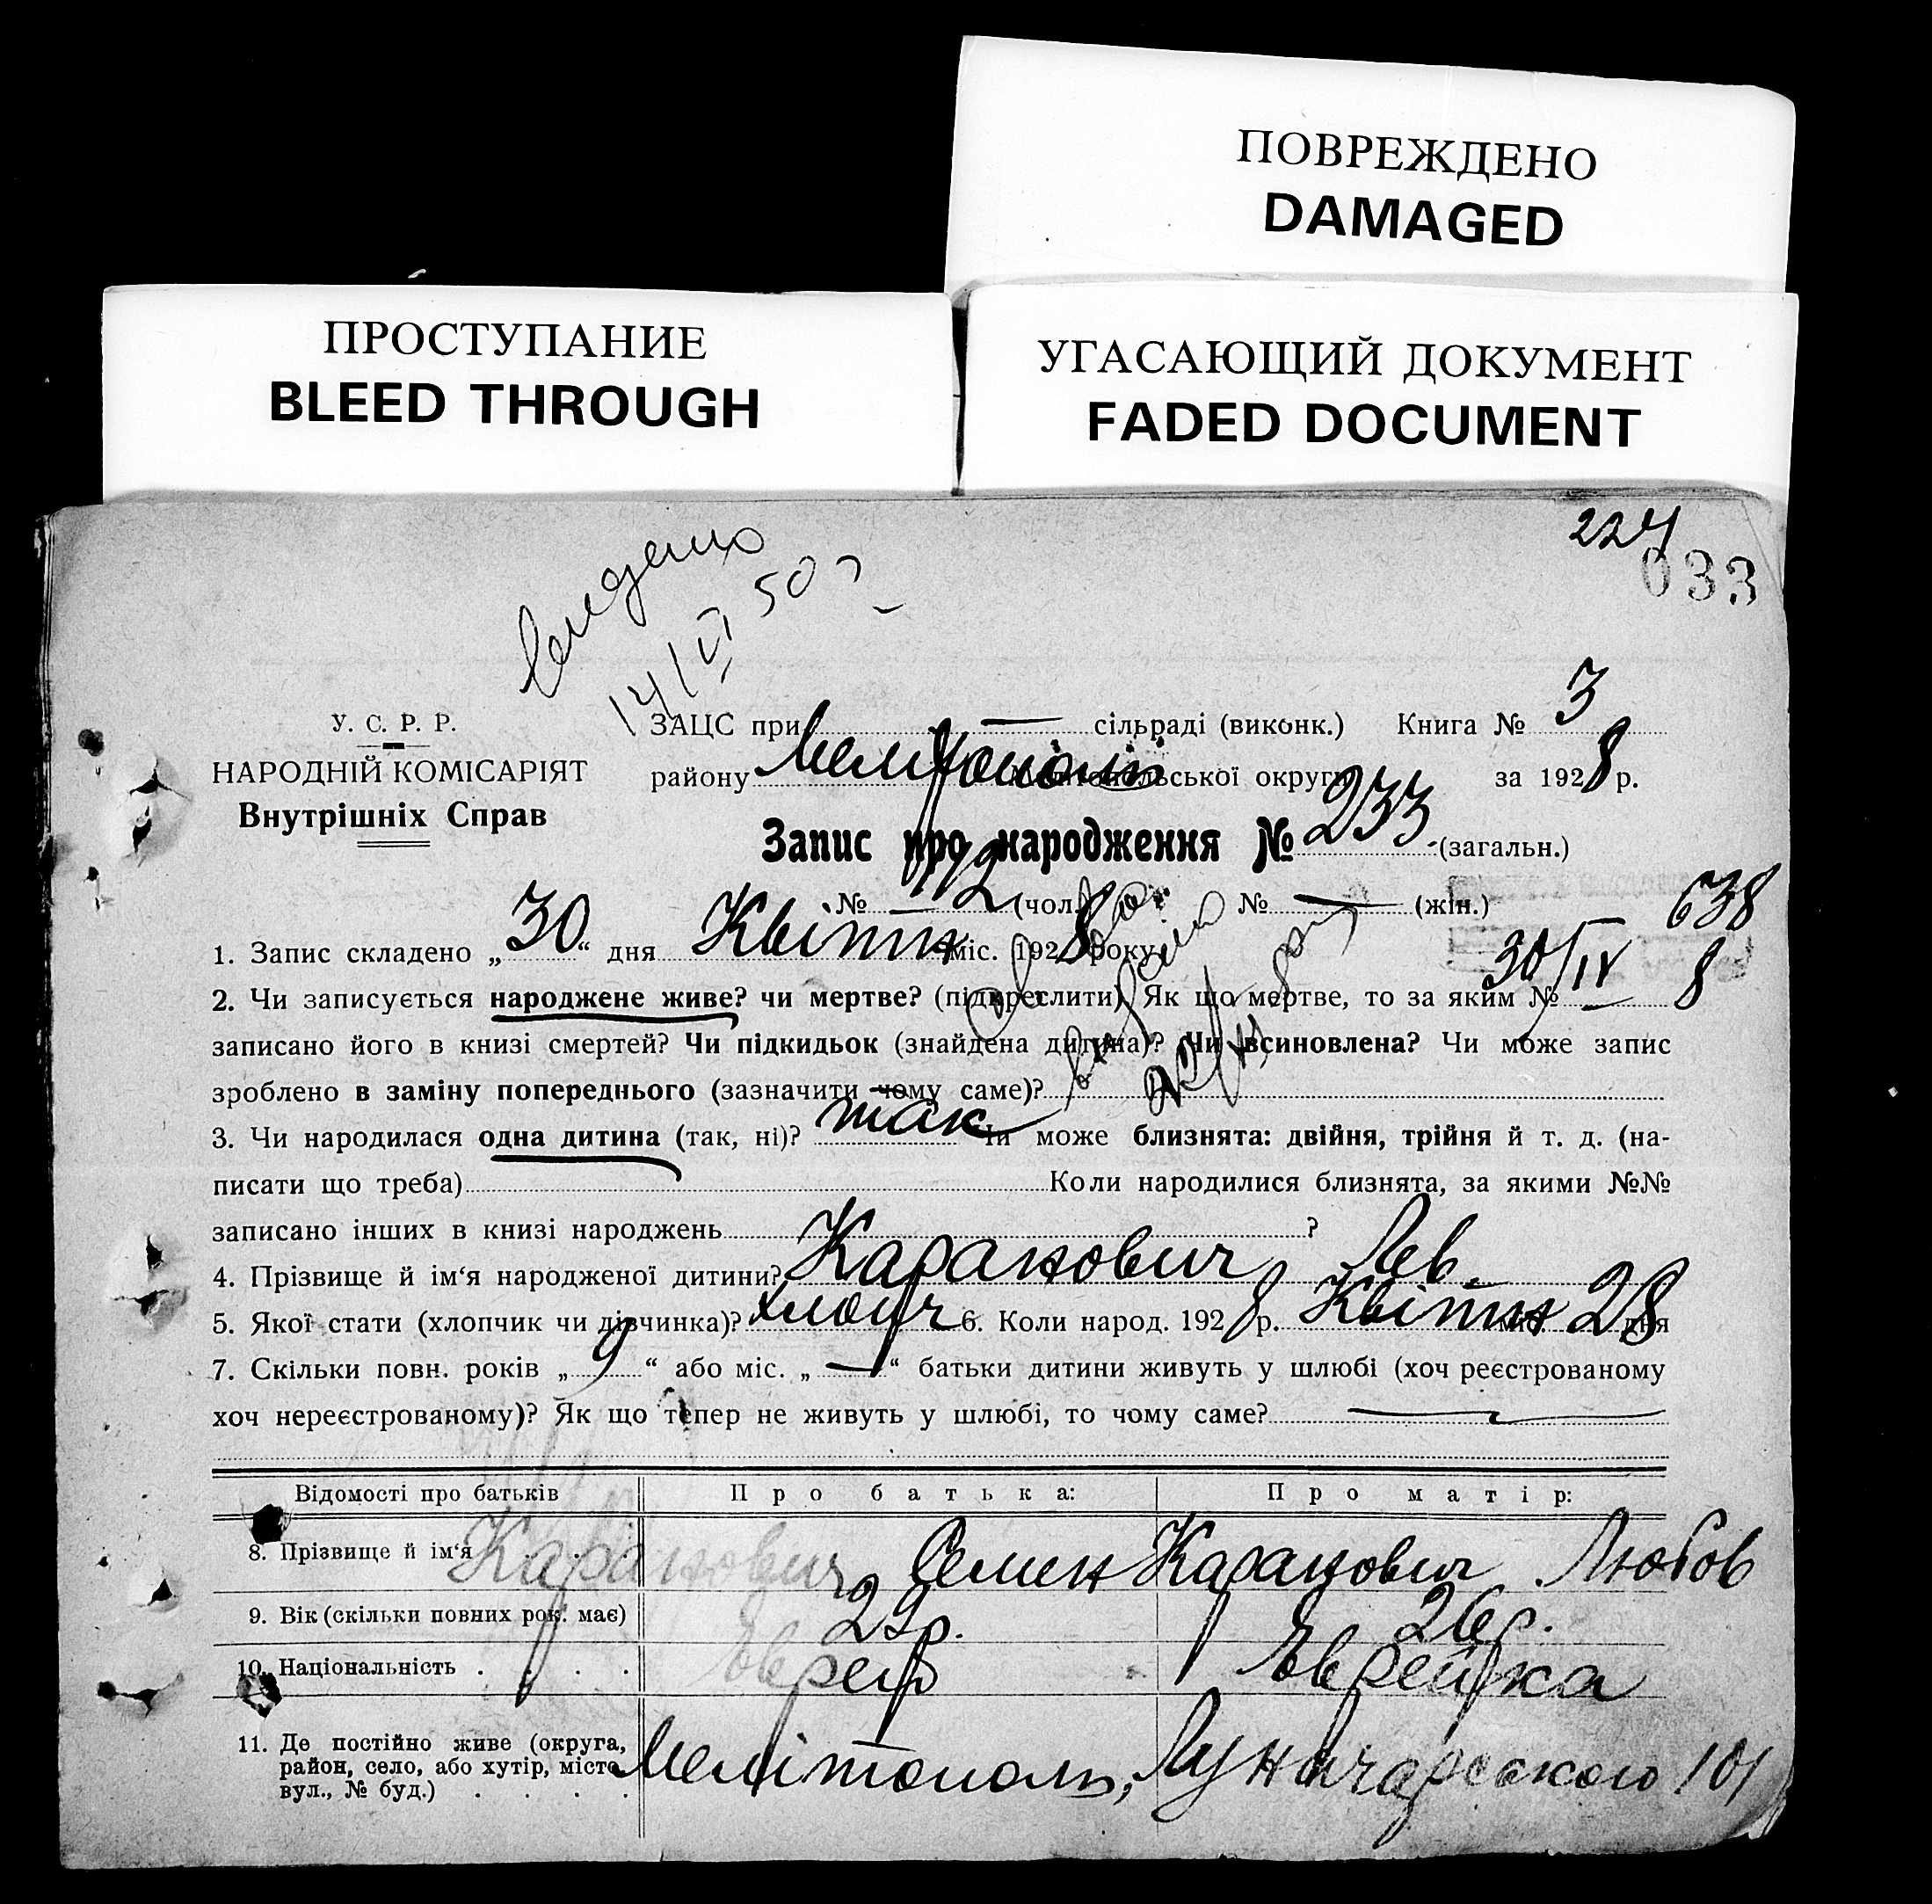 ПОВРЕЖДЕНО
DAMAGED
ПРОСТУПАНИЕ
BLEED THROUGH
УГАСАЮЩИЙ ДОКУМЕНТ
FADED DOCUMENT
224
033
14/VI 50
У. С. Р. Р.
НАРОДНІЙ КОМІСАРІЯТ
Внутрішніх Справ
ЗАЦС при — сільраді (виконк.) Книга № 3
району Мелітополь Мелітопольської округи за 1928 р.
Запис про народження № 233 (загальн.)
№ 112 (чол.) № — (жін.)
638
30/IV 8
1. Запис складено „30“ дня Квітня міс. 1928 року.
2. Чи записується народжене живе? чи мертве? (підкреслити). Як що мертве, то за яким № —
записано його в книзі смертей? Чи підкидьок (знайдена дитина)? Чи всиновлена? Чи може запис
зроблено в заміну попереднього (зазначити чому саме)?
3. Чи народилася одна дитина (так, ні)? так Чи може близнята: двійня, трійня й т. д. (на-
писати що треба) Коли народилися близнята, за якими №№
записано інших в книзі народжень ?
4. Прізвище й ім‘я народженої дитини? Каранович Лев.
5. Якої стати (хлопчик чи дівчинка)? хлопч 6. Коли народ. 1928 р. Квітня міс. 28 дня
7. Скільки повн. років „9“ або міс. „—“ батьки дитини живуть у шлюбі (хоч реєстрованому
хоч нереєстрованому)? Як що тепер не живуть у шлюбі, то чому саме? —
Відомості про батьків Про батька: Про матір:
8. Прізвище й ім‘я Каранович Семен Каранович Любов
9. Вік (скільки повних рок. має) р. 26 р.
10. Національність . . . . Єврей Єврейка
11. Де постійно живе (округа,
район, село, або хутір, місто
вул., № буд.) . . . . Мелітополь, Луначарського 101